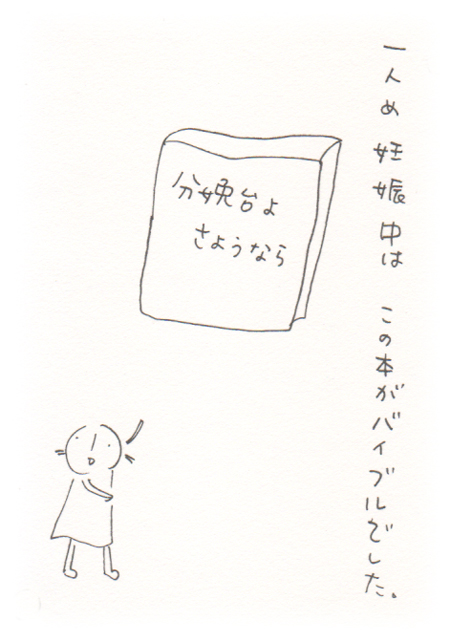 一人め 妊娠中は この本がバイブルでした。
分娩台よ
さようなら